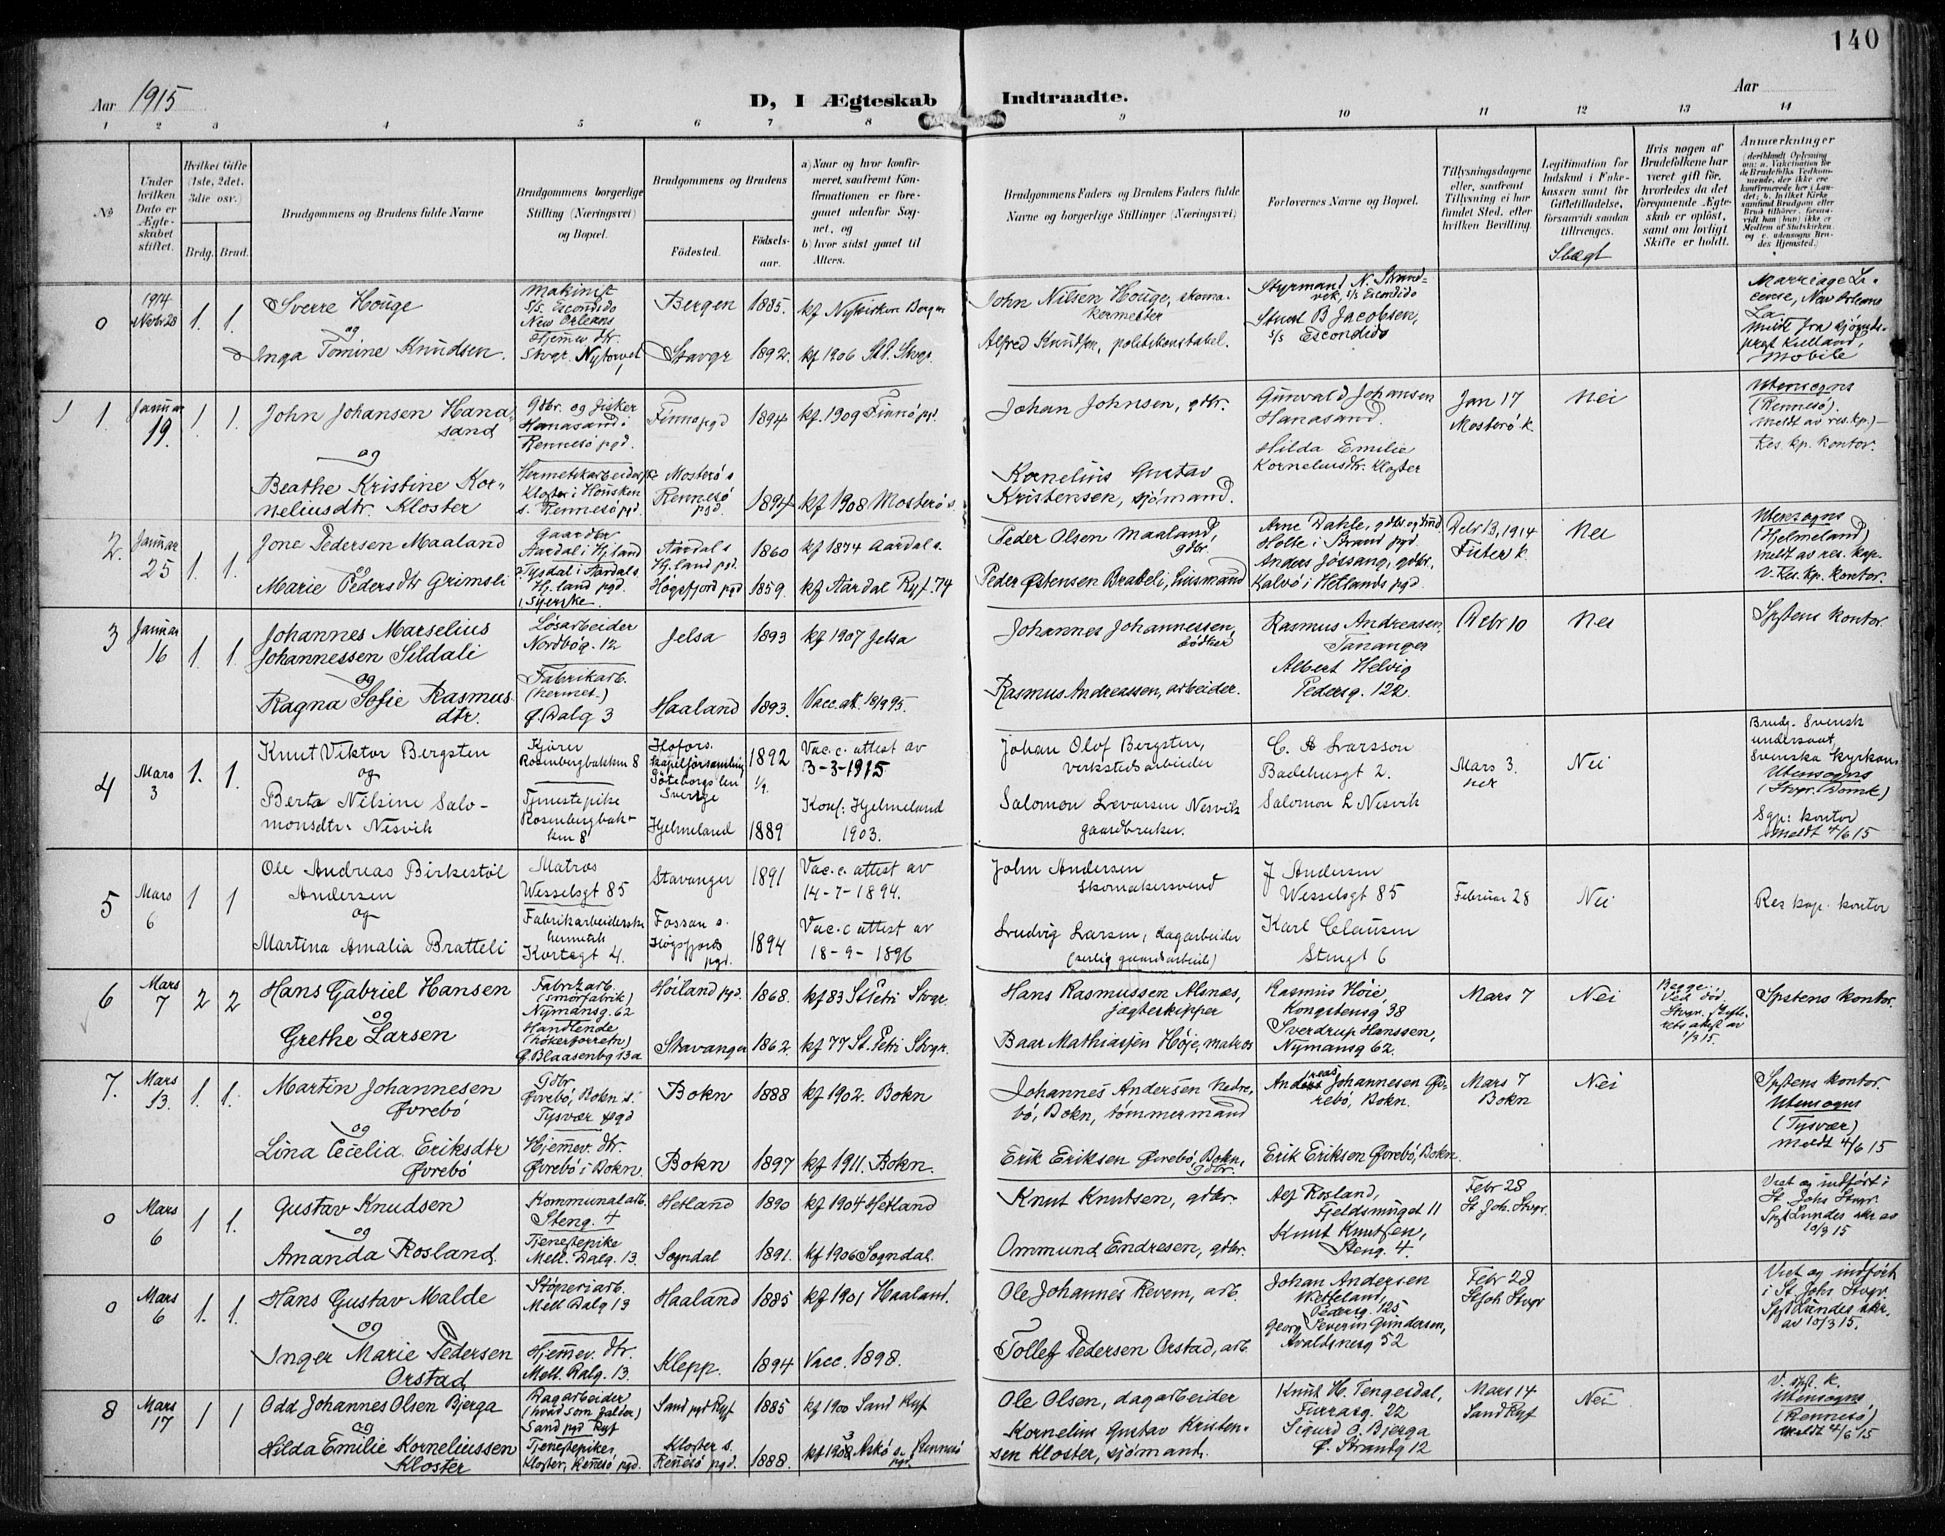 140
Aar 1915
D, I Ægteskab Indtraadte.
Aar
1 2 3 4 5 6 7 8 9 10 11 12 13 14
№
Under hvilken Dato er Ægteskabet stiftet.
Hvilket Gifte (1ste, 2det, 3die osv.)
Brdg. Brud.
Brudgommens og Brudens fulde Navne
Brudgommens borgerlige Stilling (Næringsvei) og Bopæl.
Brudgommens og Brudens
Fødested. Fødsels-aar.
a) Naar og hvor konfirmeret, saafremt Konfirmationen er foregaaet udenfor Sognet, og
b) hvor sidst gaaet til Alters.
Brudgommens Faders og Brudens Faders fulde Navne og borgerlige Stillinger (Næringsvei)
Forlovernes Navne og Bopæl.
Tillysningsdagene eller, saafremt Tillysning ei har fundet Sted, efter hvilken Bevilling.
Legitimation for Indskud i Enkekassen samt for Giftetilladelse, forsaavidt saadan tiltrænges.
Slægt
Hvis nogen af Brudefolkene har været gift før, hvorledes da det foregaaende Ægteskab er opløst, samt om lovligt Skifte er holdt.
Anmærkninger
0 1914 Novbr 28 1. 1.
Sverre Houge
og
Inga Tomine Knudsen.
Makinist
S/s. Escondido
New Orleans
Hjemev. dtr.
Stvgr. Nytorvet,
Bergen 1885. kf Nykirken Bergen
Stavgr 1892. kf 1906 St.P. Stvgr.
John Nilsen Houge, skomakermester
Alfred Knudsen, politikonstabel.
Styrmand N. Strandvik, s/s Escondido
Stuert B Jacobsen,
s/s Escondido
Marriage Licence, New Orleans
La.
Mobile
1 Januar 19. 1. 1.
John Johansen Hanasand
og
Beathe Kristine Korneliusdtr. Kloster
Gdbr. og fisker
Hanasand i
Rennesö pgd.
Hermetikarbeiderske
Kloster i Housken
s. Rennesö pgd.
Finnö pgd 1894 kf. 1909 Finnö pgd.
Mosterö s
Rennesö pgd 1894 kf 1908 Mosterö s.
Johan Johnsen, gdbr.
Kornelius Gustav
Kristensen, sjömand.
Gunvald Johansen
Hanasand.
Hilda Emilie
Korneliusdtr. Kloster
Jan 17
Mosterö k.
Nei
Utensogns
(Rennesö).
Meldt av res. kp.)
Res. kp. kontor.
2. Januar 25 1. 1.
Jone Pedersen Maaland
og
Marie Pedersdtr Grimsli
Gaardbr
Aardal i Hj.land
Tysdal i Aardal s
Hj.land pgd.
Syerske.
Aardal s
Hj.land pgd. 1860 kf 1874 Aardal s.
Høgsfjord pgd 1859. kf Aardal Ryf. 74
Peder Olsen Maaland,
gdbr.
Peder Østensen Brabeli, husmand
Arne Dahle,
Holte i Strand pgd.
Anders Jössang, gdbr.,
Kalvö i Hetlands pgd.
Decbr 13, 1914
Fister k.
Nei
Utensogns
(Hjelmeland)
meldt av res. kap.
v. Res. kp. kontor.
3 Januar 16 1. 1.
Johannes Marselius
Johannessen Sildali
og
Ragna Sofie Rasmusdtr.
Løsarbeider
Nordbøg. 12
Fabrikarb.
(hermet.)
Ø. Dalg 3
Jelsa 1893 kf 1907 Jelsa
Haaland 1893. Vacc. att 18/9 95.
Johannes Johannessen,
bødker
Rasmus Andreassen, arbeider.
Rasmus Andreasen
Tananger
Albert Helvig
Pedersg. 122.
Debr 10
Nei
Spstens kontor.
4 Mars 3 1. 1.
Knut Viktor Bergsten
og
Berta Nilsine Salomonsdtr. Nesvik
Kjører
Rosenbergbakken 8
Tjenestepike
Rosenbergbakken 8
Hofors
kapelförsamling
Göteborgs len
Sverige
1892 Vac. c. attest av
3-3-1915
Hjelmeland 1889
Konf: Hjelmeland
1903.
Johan Olof Bergsten,
verkstedsarbeider
Salomon Nesvik
gaardbruker.
C. A Larsson
Badehusgt 2.
Salomon L Nesvik
Mars 3.
Nei
Brudg. Svensk
undersaat,
Svenska kyrkan
Utensogns
(Stvgr. Domk)
Sgp: kontor
Meldt 4/6 15
5 Mars 6 1 1
Ole Andreas Birkestöl
Andersen
og
Martina Amalia Bratteli
Matros
Wesselsgt 85
Fabrikarbeiderske
hermetik
Kortegt 4.
Stavanger 1891 Vac. c. attest av
14-7-1894.
Fossan s.
Høgsfjords
pgd. 1894
Vac. c attest av
18-9-1896
John Andersen
Skomakersvend
Ludvig Larsen, dagarbeider
J Andersen
Wesselsgt 85
Karl Clausen
Stengt 6
Februar 28
Nei
Res kap. kontor
6 Mars 7 2 2
Hans Gabriel Hansen
og
Grethe Larsen
Fabrikarb.
(smörfabrik)
Nymansg. 62
Handlende
(høkerforretn)
Ø. Blaasenbg 13a
Høiland pgd. 1868. kf 83 St Petri Stvgr.
Stavanger 1862. kf 77 St. Petri Stvgr.
Hans Rasmussen Alsnæs,
jagteskipper
Baar Mathiassen Høje, matros
Rasmus Høie,
Kongstensg 38
Sverdrup Hanssen,
Nymansg 62.
Mars 7
Nei
Begge:
Ved död.
Spstens kontor.
7. Mars 13. 1. 1.
Martin Johannesen
Øvrebö
og
Lina Cecelia Eriksdtr
Øvrebö
Gdbr.
Øvrebö, Bokn s.
Tysvær pgd
Hjemev. dtr.
Øvrebö i Bokn.
Bokn 1888 kf 1902. Bokn
Bokn 1897 kf 1911. Bokn.
Johannes Andersen Nedrebö, Bokn, tömmermand
Erik Eriksen Øvrebö, Bokn,
gdbr.
Andreas Johannesen Øvrebö, Bokn.
Erik Eriksen Øvrebö, Bokn.
Mars 7
Bokn
Nei
Spstens kontor.
Utensogns
(Tysvær)
Meldt 4/6 15
0 Mars 6 1. 1.
Gustav Knudsen
og
Amanda Rosland.
Kommunalarb.
Steng. 4
Tjenestepike
Mell. Dalg. 13.
Hetland 1890 kf 1904 Hetland
Sogndal 1891. kf 1906 Sogndal.
Knut Knutsen, gdbr.
Ommund Endresen, gdbr.
Alf Rosland,
Fjeldsmuget 11
Knut Knutsen,
Steng. 4.
Febr 28
St Joh. Stvgr.
Viet og indført i
St. Johs Stvgr.
Spst Lundes skr av
10/3 15
0 Mars 6 1. 1.
Hans Gustav Malde
og
Inger Marie Pedersen
Orstad
Støperiarb.
Mell Dalg 13
Hjemev. dtr.
Mell. Dalg. 13.
Haaland 1885 kf 1901 Haaland.
Klepp. 1894 Vacc. 1898.
Ole Johannes Revem, arb.
Tollef Pedersen Orstad, arb.
Johan Andersen
Pedersg. 125
Georg Severin Gundersen,
Avaldsnesg 52
Febr 28
St Joh Stvgr
Viet og indført
i St. Johs Stvgr.
Spst Lundes skr.
av 10/3 15.
8 Mars 17 1 1
Odd Johannes Olsen Bjerga
og
Hilda Emilie Korneliussen
Kloster
Dagarbeider
(hvad som falder)
Sand pgd Ryf
Tjenestepike,
Kloster, Rennesö pgd.
Sand pgd Ryf 1885 kf 1900 Sand Ryf
Kloster s.
Rennesö pgd. 1888. kf 1903 Askö s. Rennesö
pgd.
Ole Olsen, dagarbeider
Kornelius Gustav Kristensen Kloster, sjömand.
Knut H. Tengesdal,
Furrasg. 22
Sigurd O. Bjerga
Ø. Strandg 12
Mars 14
Sand Ryf
Nei
V. spst. k.
Utensogns
(Rennesö)
meldt 4/6 15